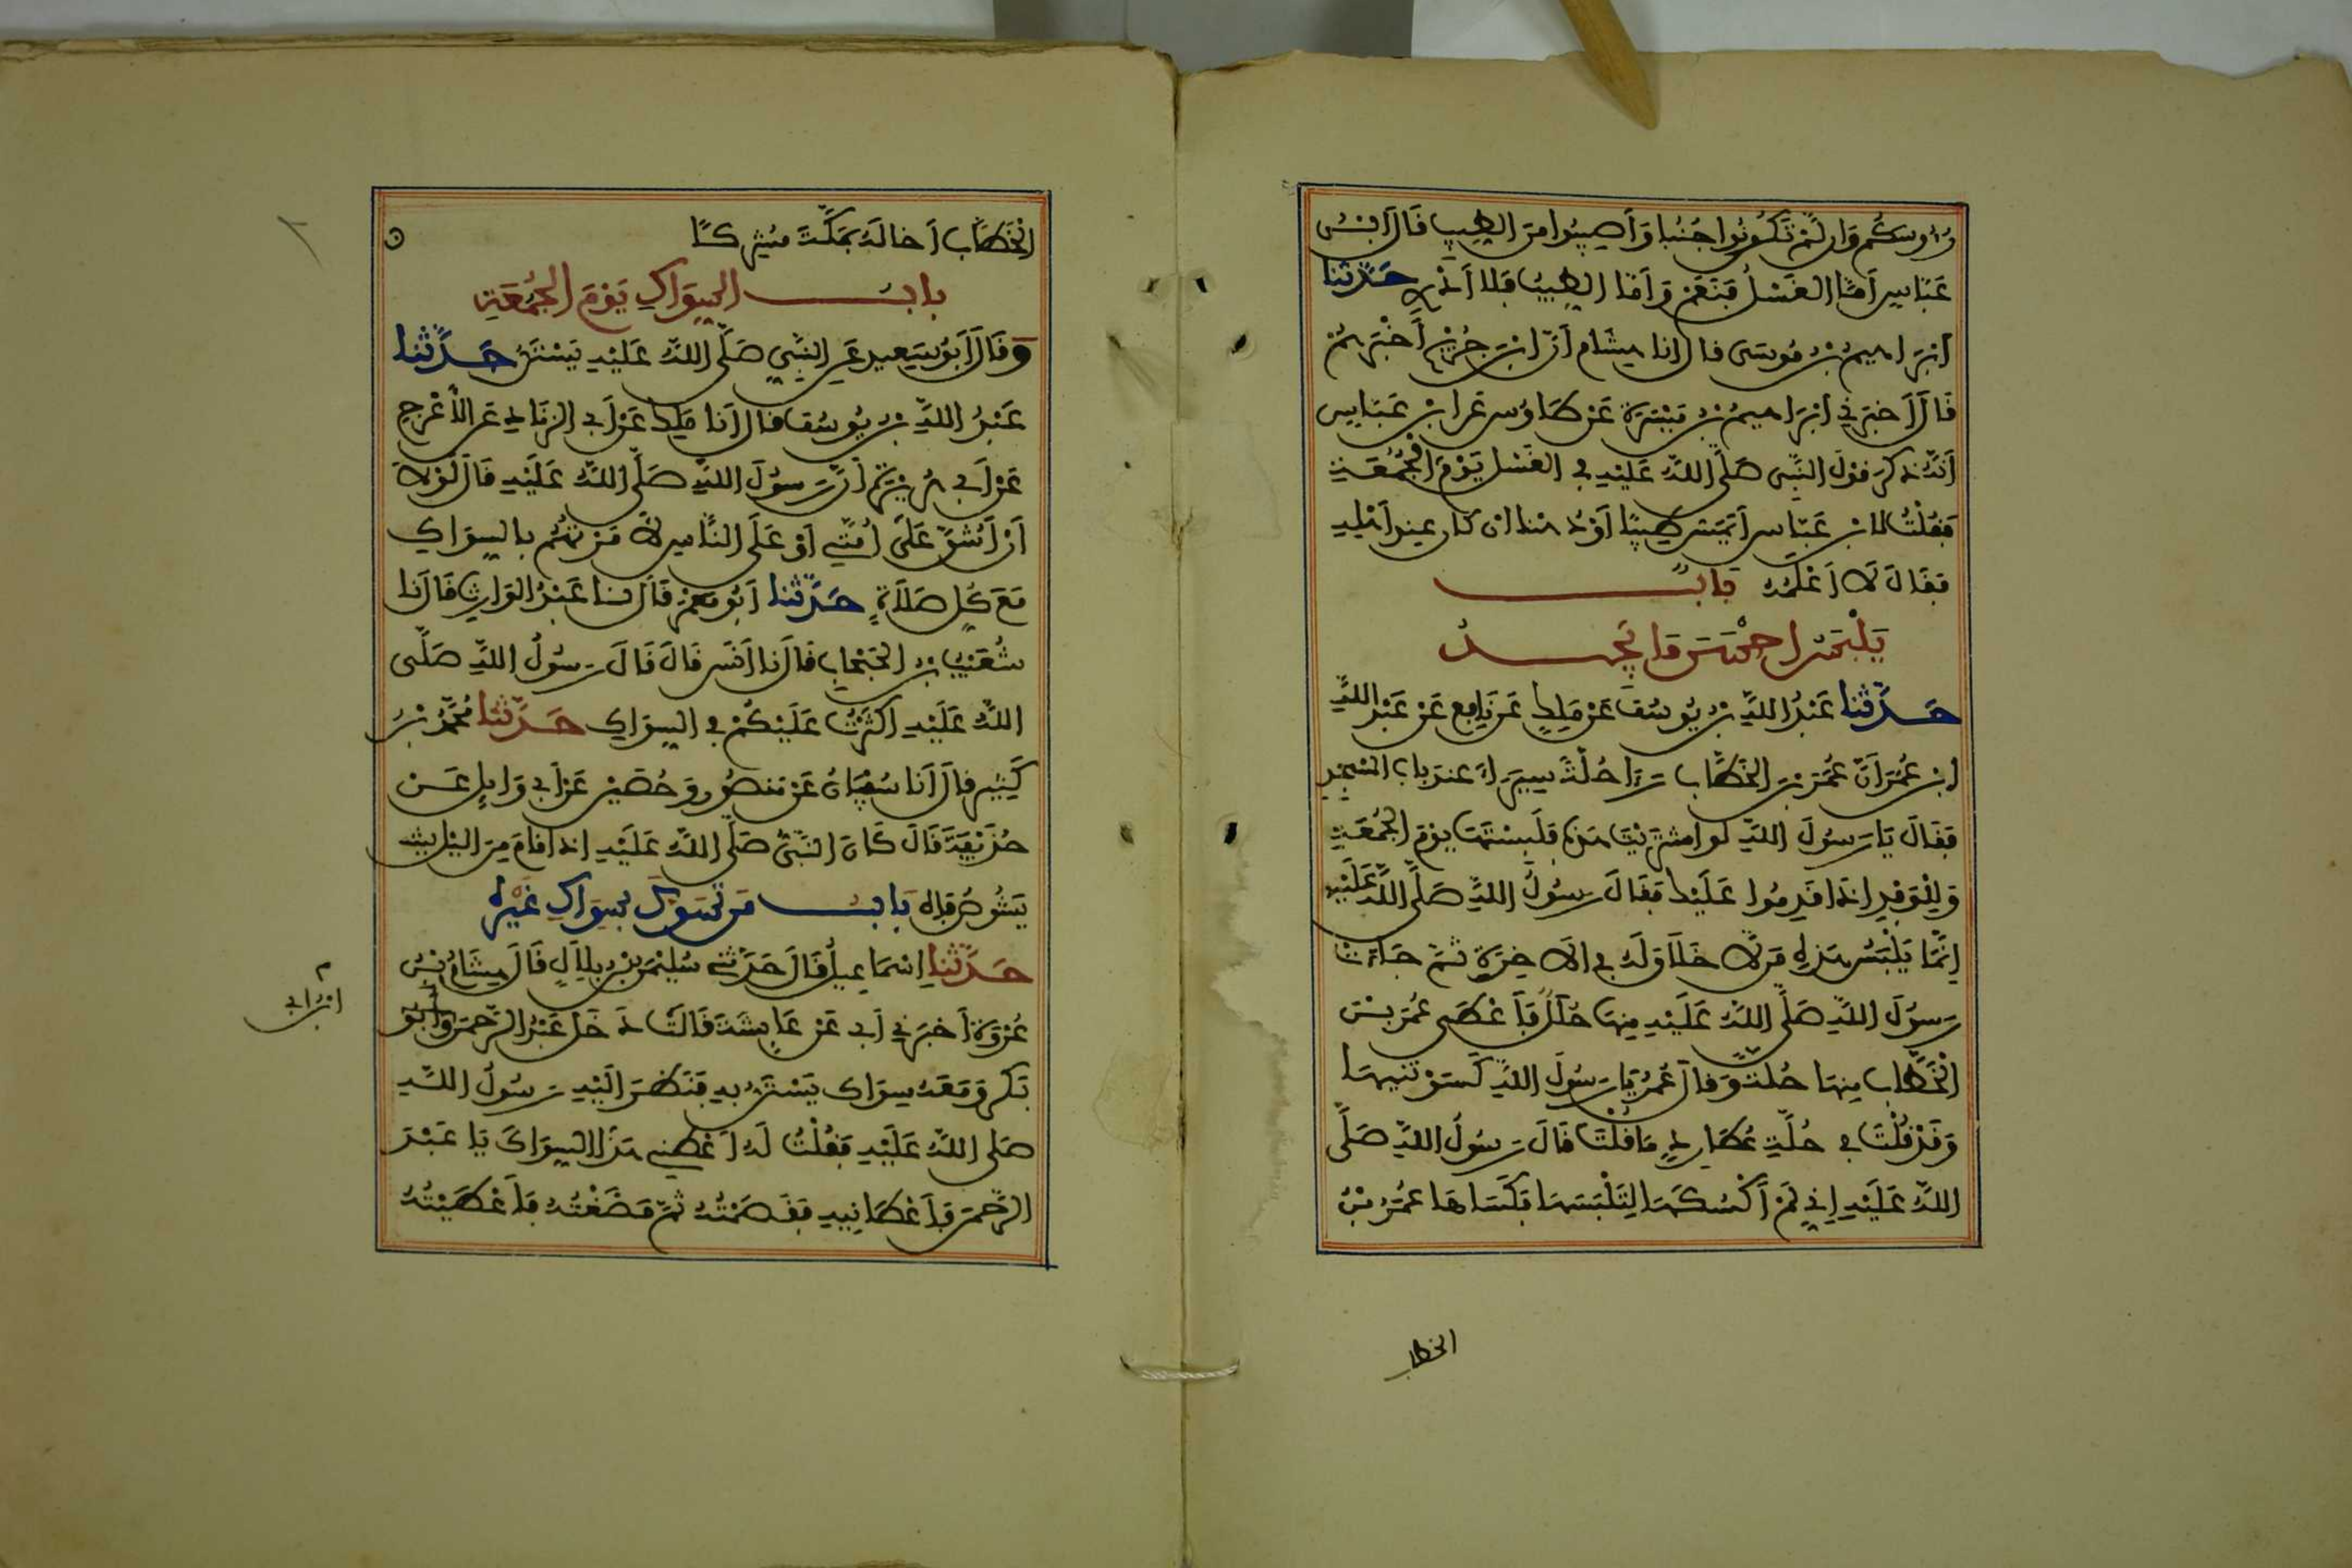 رُءُوسَكُمْ وَإِن لَّمْ تَكُونُوا جُنُبًا وَأَصِيبُوا مِنَ الطِّيبِ قَالَ ابْنُ
عَبَّاسٍ أَمَّا الْغَسْلُ فَنَعَمْ وَأَمَّا الطِّيبُ فَلَا أَدْرِي حَدَّثَنَا
إِبْرَاهِيمُ بْنُ مُوسَى قال انا هِشَام أَنَّ ابْنَ جُرَيْجٍ أَخْبَرَهُمْ
قَالَ أَخبَرَنِي إِبْرَاهِيمُ بْنُ مَيْسَرَةَ عَنْ طَاوُسٍ عَنِ ابْنِ عَبَّاسٍ
أَنَّهُ ذكَرَ قَوْلَ النَّبِيِّ صَلَّى اللهُ عَلَيْهِ فِي الغَسْلِ يَوْمَ الْجُمُعَةِ
فَقُلْتُ لابْنِ عَبَّاسٍ أَيَمَسُّ طِيبًا أَوْ دُهْنا إن كان عِند أَهْلِهِ
فَقَالَ لَا أَعْلَمُهُ بَابٌ
يَلْبَسُ أَحْسَنَ مَا يَجِدُ
حَدَّثَنا عَبْدُ اللَّهِ بْنُ يُوسُفَ عَنْ مَلِكٍ عَنْ نَافِعٍ عَنْ عَبْدِ اللَّهِ
ابْنِ عُمَرَ أَنَّ عُمَرَ بْنَ الْخَطَّابِ رَءَا حُلَّةً سِيَرَاءَ عِندَ بَابِ الْمَسْجِدِ
فَقَالَ يَا رَسُولَ اللَّهِ لو اشتَرَيْتَ هَذِهِ فَلَبِسْتَهَا يوْمَ الْجُمُعَةِ
وَلِلْوَفْدِ إِذَا قَدِمُوا عَلَيْكَ فَقَالَ رَسُولُ اللَّهِ صَلَّى اللهُ عَلَيْهِ
إِنَّمَا يَلْبَسُ هَذِهِ مَن لَّا خَلَاقَ لَهُ فِي الَاخِرَةِ ثُمَّ جَاءَتْ
رَسُولَ اللَّهِ صَلَّى اللَّهُ عَلَيْهِ مِنهَا حُلَلٌ فَأَعْطَى عُمَرَ بْنَ
الْخَطَّابِ مِنهَا حُلَّةً وَقال عُمَرُ يَا رَسُولَ اللَّهِ كَسَوْتَنِيهَا
وَقَدْ قُلْتَ فِي حُلَّةِ عُطَارِدٍ مَا قُلْتَ قَالَ رَسُولُ اللَّهِ صَلَّى
اللَّهُ عَلَيْهِ إِنِّي لَمْ أَكْسُكَهَا لِتَلْبَسَهَا فَكَسَاهَا عُمَرُ بْنُ
الخطاب
الْخَطَّابِ أَخا لَهُ بِمَكَّةَ مُشْرِكًا
بابُ السِّوَاكِ يَوْمَ الْجُمُعَةِ
وَقَالَ أَبُو سَعِيدٍ عَنِ النَّبِيِّ صَلَّى اللَّهُ عَلَيْهِ يَسْتَنُّ حَدَّثَنا
عَبْدُ اللَّهِ بْنُ يُوسُفَ قال أَنا مَلِكٌ عَنْ أَبِي الزِّنَادِ عَنِ الْأَعْرَجِ
عَنْ أَبِي هُرَيْرَةَ أَنَّ رَسُولَ اللَّهِ صَلَّى اللَّهُ عَلَيْهِ قَالَ لَوْلَا
أَنْ أَشُقَّ عَلَى أُمَّتِي أَوْ عَلَى النَّاسِ لَأَمَرْتُهُم بِالسِّوَاكِ
مَعَ كُلِّ صَلَاةٍ حَدَّثَنا أَبُو مَعْمَرٍ قَالَ نا عَبْدُ الْوَارِثِ قَالَ نا
شُعَيْبُ بْنُ الْحَبْحَابِ قالَ نا أَنَس قَالَ قَالَ رَسُولُ اللَّهِ صَلَّى
اللَّهُ عَلَيْهِ أَكْثَرْتُ عَلَيْكُمْ فِي السِّوَاكِ حَدَّثَنا مُحَمَّدُ بْنُ
كَثِيرٍ قالَ أَنَا سُفْيَانُ عَنْ مَنصُورٍ وَحُصَيْنٍ عَنْ أَبِي وَايِلٍ عَنْ
حُذَيْفَةَ قَالَ كَانَ النَّبِيُّ صَلَّى اللَّهُ عَلَيْهِ إِذا قَامَ مِنَ اللَّيْلِ
يَشُوصُ فَاهُ بَابُ مَن تَسَوَّكَ بِسِوَاكِ غَيْرِهِ
حَدَّثَنا إِسْمَاعِيلُ قَالَ حَدَّثَنِي سُلَيْمَنُ بْنُ بِلَالٍ قَالَ هِشَامُ بْنُ
عُرْوَةَ أَخْبَرَنِي أَبِي عَنْ عَايِشَةَ قَالَتْ دَخَلَ عَبْدُ الرَّحْمَنِ وَأَبُو
بَكْرٍ وَمَعَهُ سِوَاك يَسْتَنُّ بِهِ فَنَظَرَ إِلَيْهِ رَسُولُ اللَّهِ
صَلَّى اللَّهُ عَلَيْهِ فَقُلْتُ لَهُ أَعْطِنِي هَذَا السِّوَاكَ يَا عَبْدَ
الرَّحْمَنِ فَأَعْطَانِيهِ فَقَصَمْتُهُ ثُمَّ مَضَغْتُهُ فَأَعْطَيْتُهُ
ابن ابي